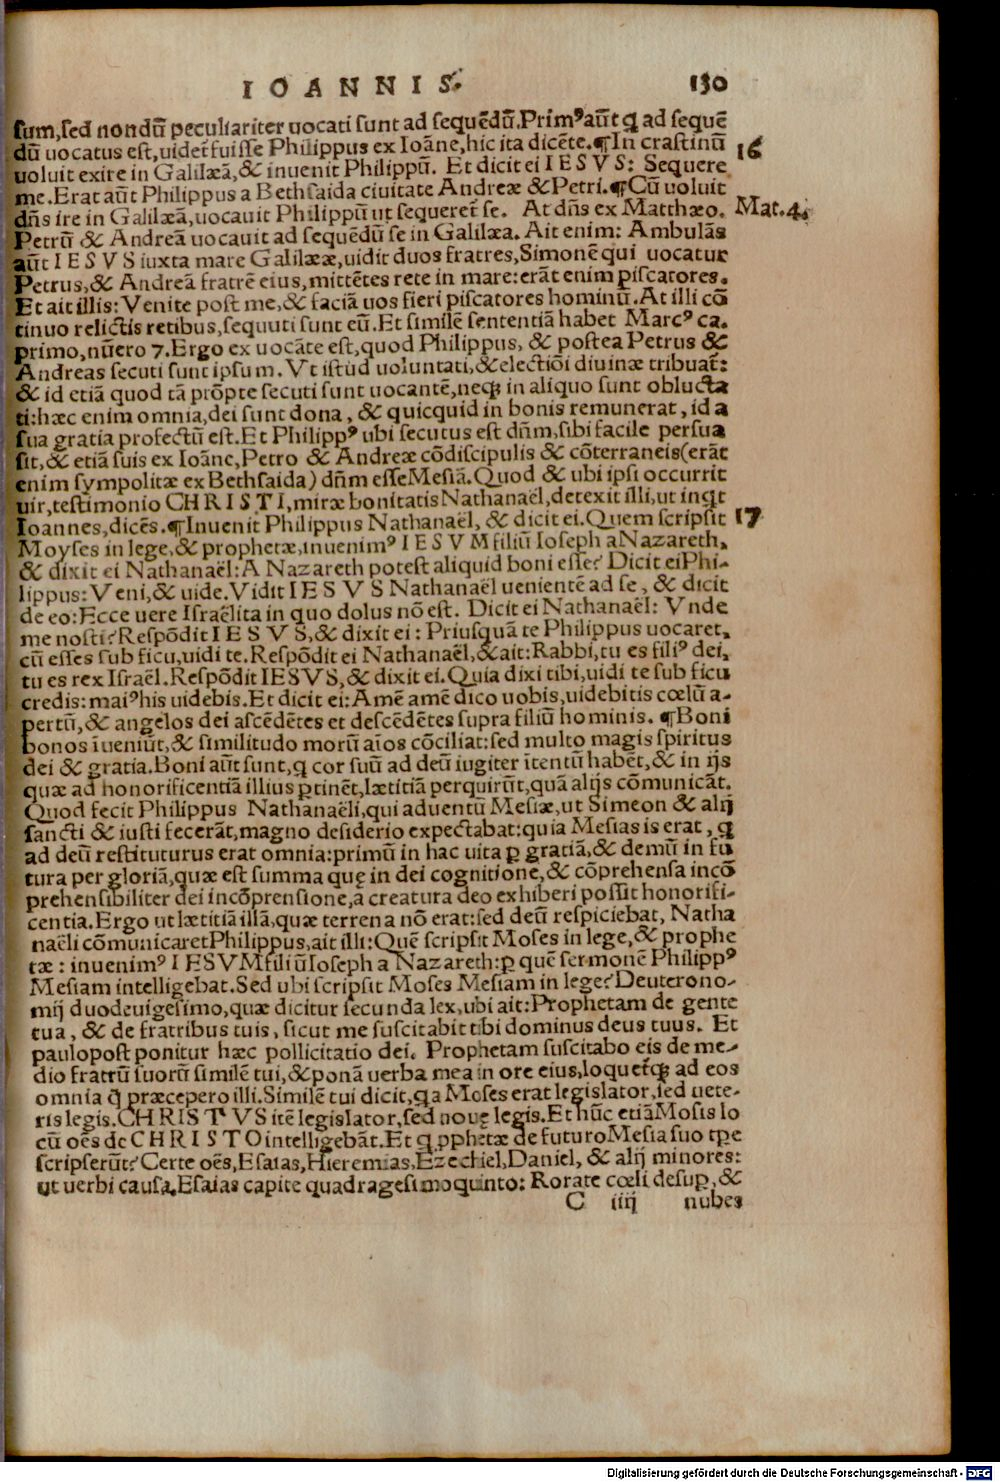 IOANNIS. 130
sum,sed nondū peculiariter uocati sunt ad sequēdū.Primꝰ aūt q̄ ad sequē
dū uocatus est,uidet̄ fuisse Philippus ex Ioāne,hic ita dicēte.¶In crastinū 16
uoluit exire in Galilæā,& inuenit Philippū. Et dicit ei IESVS: Sequere
me.Erat aūt Philippus a Bethsaida ciuitate Andreæ & Petri.¶Cū uoluit
dn̄s ire in Galilæā,uocauit Philippū ut sequeret̄ se. At dn̄s ex Matthæo. Mat.4.
Petrū & Andreā uocauit ad sequēdū se in Galilæa. Ait enim: Ambulās
aūt IESVS iuxta mare Galilææ,uidit duos fratres,Simonē qui uocatur
Petrus,& Andreā fratrē eius,mittētes rete in mare:erāt enim piscatores.
Et ait illis: Venite post me,& faciā uos fieri piscatores hominū.At illi cō
tinuo relictis retibus,sequuti sunt eū.Et similē sententiā habet Marcꝰ ca.
primo,nūero 7.Ergo ex uocāte est,quod Philippus, & postea Petrus &
Andreas secuti sunt ipsum. Vt istud uoluntati,& electiōi diuinæ tribuat̄:
& id etiā quod tā prōpte secuti sunt uocantē,neqꝫ in aliquo sunt oblucta
ti:hæc enim omnia,dei sunt dona, & quicquid in bonis remunerat, id a
sua gratia profectū est.Et Philippꝰ ubi secutus est dn̄m,sibi facile persua
sit,& etiā suis ex Ioāne,Petro & Andreæ cōdiscipulis & cōterraneis(erāt
enim sympolitæ ex Bethsaida) dn̄m esse Mesiā.Quod & ubi ipsi occurrit
uir,testimonio CHRISTI,miræ bonitatis Nathanaël,detexit illi,ut inq̄t
Ioannes,dicēs.¶Inuenit Philippus Nathanaël, & dicit ei.Quem scripsit 17
Moyses in lege,& prophetæ,inuenimꝰ IESVM filiū Ioseph a Nazareth,
& dixit ei Nathanaël:A Nazareth potest aliquid boni esse? Dicit ei Phi-
lippus: Veni,& uide.Vidit IESVS Nathanaël uenientē ad se, & dicit
de eo:Ecce uere Israëlita in quo dolus nō est. Dicit ei Nathanaël: Vnde
me nosti?Respōdit IESVS,& dixit ei: Priusquā te Philippus uocaret,
cū esses sub ficu,uidi te.Respōdit ei Nathanaël,& ait:Rabbi,tu es filiꝰ dei,
tu es rex Israël.Respōdit IESVS,& dixit ei.Quia dixi tibi,uidi te sub ficu
credis:maiꝰ his uidebis.Et dicit ei:Amē amē dico uobis,uidebitis cœlū a-
pertū,& angelos dei ascēdētes et descēdētes supra filiū hominis. ¶Boni
bonos īueniūt,& similitudo morū aīos cōciliat:sed multo magis spiritus
dei & gratia.Boni aūt sunt,q̄ cor suū ad deū iugiter ītentū habēt,& in ijs
quæ ad honorificentiā illius ꝑtinēt,lætitiā perquirūt,quā alijs cōmunicāt.
Quod fecit Philippus Nathanaëli,qui aduentū Mesiæ,ut Simeon & alij
sancti & iusti fecerāt,magno desiderio expectabat:quia Mesias is erat, q̄
ad deū restituturus erat omnia:primū in hac uita ꝑ gratiā,& demū in fu
tura per gloriā,quæ est summa quę in dei cognitione,& cōprehensa incō
prehensibiliter dei incōprensione,a creatura deo exhiberi possit honorifi-
centia.Ergo ut lætitiā illā,quæ terrena nō erat:sed deū respiciebat, Natha
naëli cōmunicaret Philippus,ait illi:Quē scripsit Moses in lege,& prophe
tæ: inuenimꝰ IESVM filiū Ioseph a Nazareth:ꝑ quē sermonē Philippꝰ
Mesiam intelligebat.Sed ubi scripsit Moses Mesiam in lege? Deuterono-
mij duodeuigesimo,quæ dicitur secunda lex,ubi ait:Prophetam de gente
tua, & de fratribus tuis, sicut me suscitabit tibi dominus deus tuus. Et
paulopost ponitur hæc pollicitatio dei. Prophetam suscitabo eis de me-
dio fratrū suorū similē tui,& ponā uerba mea in ore eius,loquet̄qꝫ ad eos
omnia q̄ præcepero illi.Similē tui dicit,qa Moses erat legislator,sed uete-
ris legis.CHRISTVS itē legislator,sed nouę legis.Et hūc etiā Mosis lo
cū oēs de CHRISTO intelligebāt.Et q̄ ꝓphetæ de futuro Mesia suo tꝑe
scripserūt? Certe oēs,Esaias,Hieremias,Ezechiel,Daniel, & alij minores:
ut uerbi causa,Esaias capite quadragesimoquinto: Rorate cœli desuꝑ,&
C iiij nubes
Digitalisierung gefördert durch die Deutsche Forschungsgemeinschaft - DFG